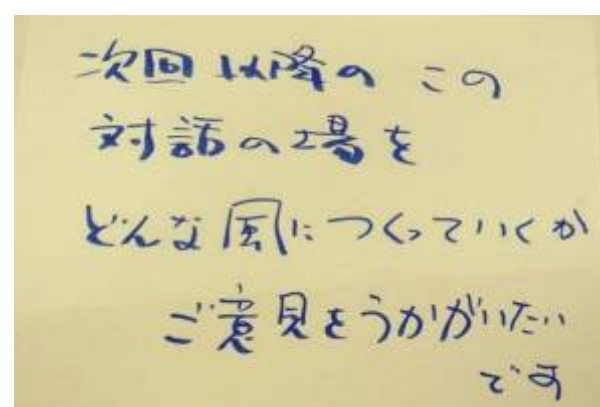 次回以降の この
対話の場を
どんな風につくっていくか
ご意見をうかがいたい
です